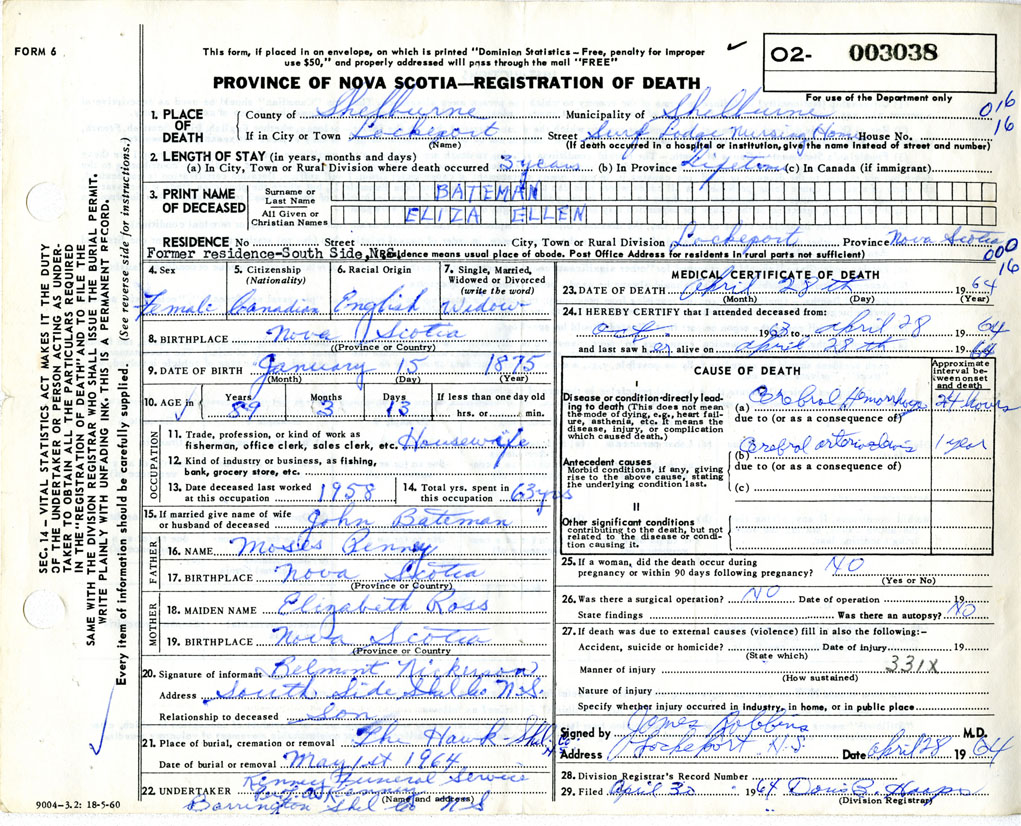 FORM 6
This form, if placed in an envelope, on which is printed "Dominion Statistics – Free, penalty for improper
use $50," and properly addressed will pass through the mail "FREE"
✓
02- 003038
For use of the Department only
PROVINCE OF NOVA SCOTIA—REGISTRATION OF DEATH
016
16
1. PLACE OF DEATH
County of Shelburne Municipality of Shelburne
If in City or Town Lockeport Street Surf Lodge Nursing Home House No.
(Name) (If death occurred in a hospital or institution, give the name instead of street and number)
2. LENGTH OF STAY (in years, months and days)
(a) In City, Town or Rural Division where death occurred 3 years (b) In Province Lifetime (c) In Canada (if immigrant)
3. PRINT NAME OF DECEASED
Surname or Last Name BATEMAN
All Given or Christian Names ELIZA ELLEN
RESIDENCE No Street City, Town or Rural Division Lockeport Province Nova Scotia
000
00 16
Former residence-South Side, N.S. (Residence means usual place of abode. Post Office Address for residents in rural parts not sufficient)
4. Sex Female
5. Citizenship (Nationality) Canadian
6. Racial Origin English
7. Single, Married, Widowed or Divorced (write the word) Widow
8. BIRTHPLACE Nova Scotia
(Province or Country)
9. DATE OF BIRTH January 15 1875
(Month) (Day) (Year)
10. AGE in Years Months Days If less than one day old
✓ 89 3 13 hrs. or min.
OCCUPATION
11. Trade, profession, or kind of work as
fisherman, office clerk, sales clerk, etc. Housewife
12. Kind of industry or business, as fishing,
bank, grocery store, etc.
13. Date deceased last worked
at this occupation 1958
14. Total yrs. spent in
this occupation 63 yrs
15. If married give name of wife
or husband of deceased John Bateman
FATHER
16. NAME Moses Penney
17. BIRTHPLACE Nova Scotia
(Province or Country)
MOTHER
18. MAIDEN NAME Elizabeth Ross
19. BIRTHPLACE Nova Scotia
(Province or Country
20. Signature of informant Belmont Nickerson
Address South Side Shel Co N.S.
Relationship to deceased Son
21. Place of burial, cremation or removal The Hawk Shel Co
Date of burial or removal May 1st 1964
22. UNDERTAKER Kenney Funeral Service
(Name and address)
Barrington Shel Co N S
9004-3.2: 18-5-60
MEDICAL CERTIFICATE OF DEATH
23. DATE OF DEATH April 28th 1964
(Month) (Day) (Year)
24. I HEREBY CERTIFY that I attended deceased from:
Oct 1963 to April 28 1964
and last saw her alive on April 28th 1964
CAUSE OF DEATH
Approximate interval between onset and death
I
Disease or condition directly leading to death (This does not mean the mode of dying, e.g., heart failure, asthenia, etc. It means the disease, injury, or complication which caused death.)
(a) Cerebral Hemorrhage 24 hours
due to (or as a consequence of)
Antecedent causes
Morbid conditions, if any, giving rise to the above cause, stating the underlying condition last.
(b) Cerebral arteriosclerosis 1 year
due to (or as a consequence of)
(c)
II
Other significant conditions
contributing to the death, but not related to the disease or condition causing it.
25. If a woman, did the death occur during
pregnancy or within 90 days following pregnancy? NO
(Yes or No)
26. Was there a surgical operation? NO Date of operation 19
State findings Was there an autopsy? NO
27. If death was due to external causes (violence) fill in also the following:–
Accident, suicide or homicide? Date of injury 19
(State which)
Manner of injury 331X
(How sustained)
Nature of injury
Specify whether injury occurred in industry, in home, or in public place
Signed by James Robbins M.D.
Address Lockeport N.S. Date April 28 1964
28. Division Registrar's Record Number
29. Filed April 30 1964 Doris B.
(Division Registrar)
SEC. 14 – VITAL STATISTICS ACT MAKES IT THE DUTY
OF THE UNDERTAKER OR PERSON ACTING AS UNDER-
TAKER TO OBTAIN ALL THE PARTICULARS REQUIRED
IN THE "REGISTRATION OF DEATH" AND TO FILE THE
SAME WITH THE DIVISION REGISTRAR WHO SHALL ISSUE THE BURIAL PERMIT.
WRITE PLAINLY WITH UNFADING INK. THIS IS A PERMANENT RECORD.
Every item of information should be carefully supplied. (See reverse side for instructions.)
✓